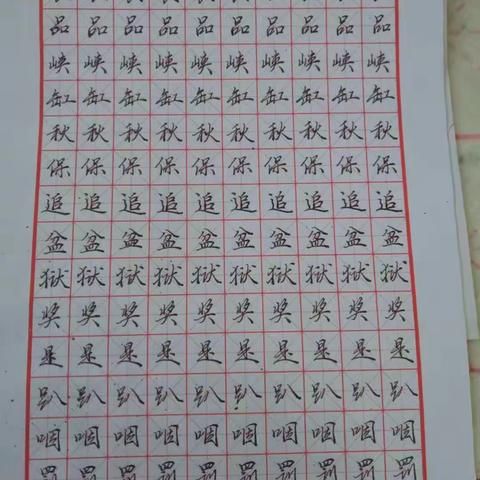 品品品品品品品品品品
峡峡峡峡峡峡峡峡峡峡
缸缸缸缸缸缸缸缸缸缸
秋秋秋秋秋秋秋秋秋秋
保保保保保保保保保保
追追追追追追追追追追
盆盆盆盆盆盆盆盆盆盆
狱狱狱狱狱狱狱狱狱狱
奖奖奖奖奖奖奖奖奖奖
是是是是是是是是是是
趴趴趴趴趴趴趴趴趴趴
咽咽咽咽咽咽咽咽咽咽
罚罚罚罚罚罚罚罚罚罚